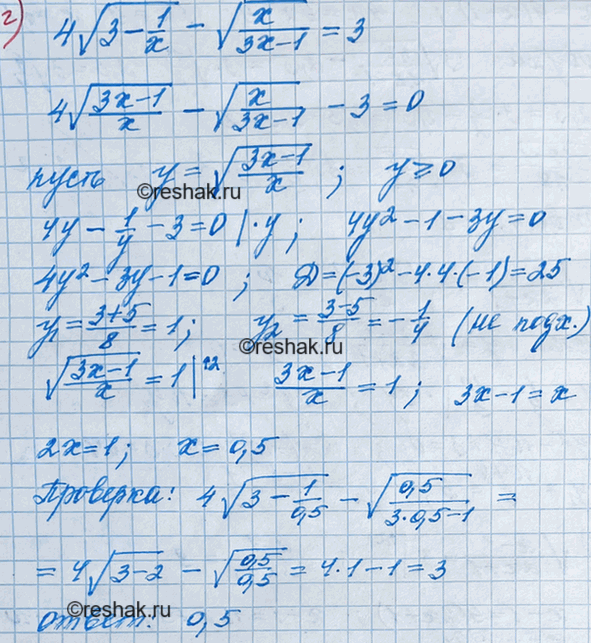 г) 4√(3 − 1/x) − √(x/(3x−1)) = 3
4√((3x−1)/x) − √(x/(3x−1)) − 3 = 0
пусть y = √((3x−1)/x) ; y ≥ 0
©reshak.ru
4y − 1/y − 3 = 0 | · y ; 4y² − 1 − 3y = 0
4y² − 3y − 1 = 0 ; D = (−3)² − 4·4·(−1) = 25
y₁ = (3+5)/8 = 1 ; y₂ = (3−5)/8 = −1/4 (не подх.)
©reshak.ru
√((3x−1)/x) = 1 |^2 (3x−1)/x = 1 ; 3x−1 = x
2x = 1 ; x = 0,5
Проверка: 4√(3 − 1/0,5) − √(0,5/(3·0,5−1)) =
= 4√(3−2) − √(0,5/0,5) = 4·1−1 = 3
©reshak.ru
ответ: 0,5